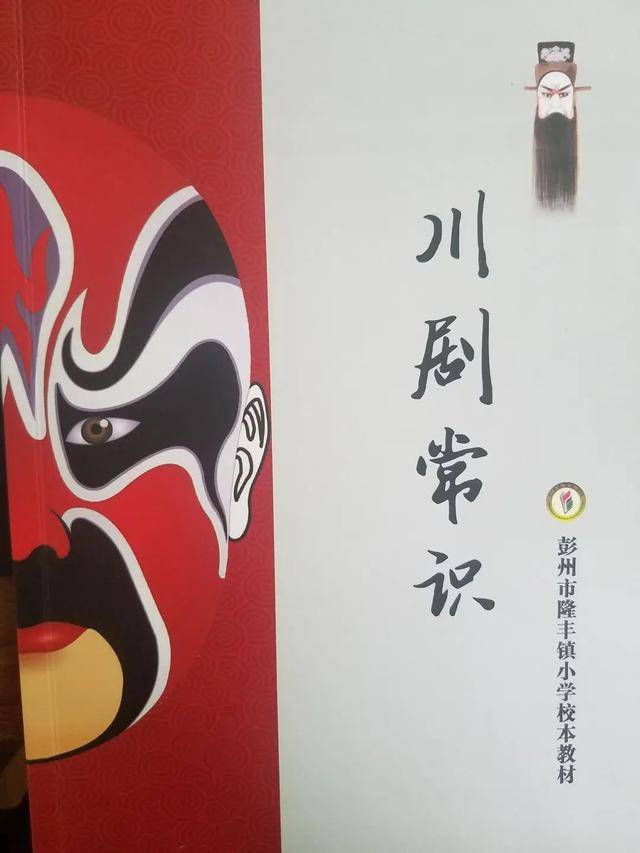 川剧常识
彭州市隆丰镇小学校本教材